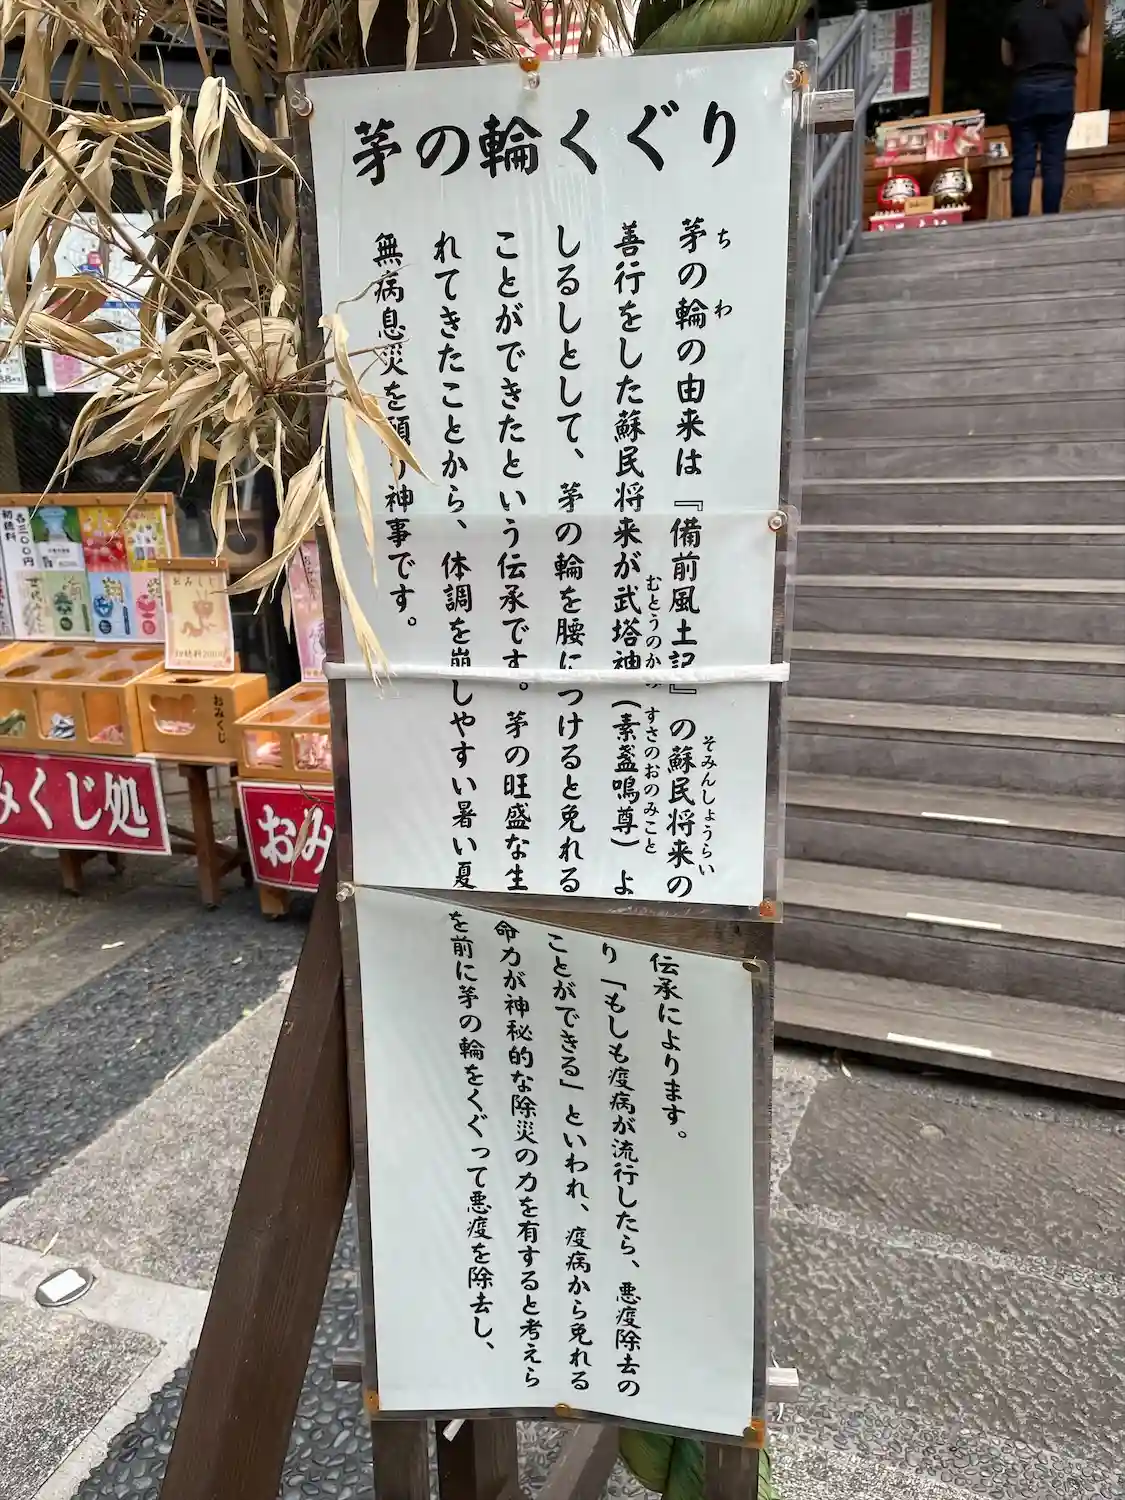 茅の輪くぐり
茅の輪の由来は『備前風土記』の蘇民将来の伝承によります。
ちわ
そみんしょうらい
善行をした蘇民将来が武塔神(素盞嗚尊)より「もしも疫病が流行したら、悪疫除去の
むとうのかみ
すさのおのみこと
しるしとして、茅の輪を腰につけると免れることができる」といわれ、疫病から免れる
ことができたという伝承です。茅の旺盛な生命力が神秘的な除災の力を有すると考えら
れてきたことから、体調を崩しやすい暑い夏を前に茅の輪をくぐって悪疫を除去し、
無病息災を願う神事です。
初穂料
各三〇〇円
おみくじ
初穂料200円
おみくじ
みくじ処
おみ